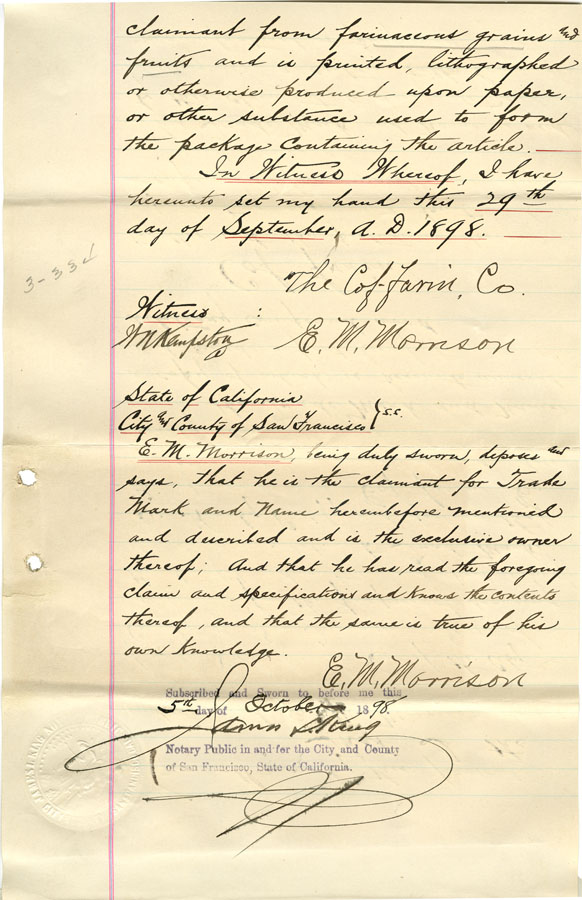 claimant from farinaceous grains and
fruits and is printed, lithographed
or otherwise produced upon paper,
or other substance used to form
the package containing the article.
In Witness Whereof, I have
hereunto set my hand this 29th
day of September, A.D. 1898.
3-334
The Cof-Farin, Co.
Witness :
E. M. Morrison
State of California
City and County of San Francisco } s.s.
E. M. Morrison, being duly sworn, deposes and
says, that he is the claimant for Trade
Mark and Name hereinbefore mentioned
and described and is the exclusive owner
thereof; And that he has read the foregoing
claim and specifications and knows the contents
thereof, and that the same is true of his
own knowledge.
E. M. Morrison
Subscribed and Sworn to before me this
5th day of October 1898.
James L. King
Notary Public in and for the City and County
of San Francisco, State of California.